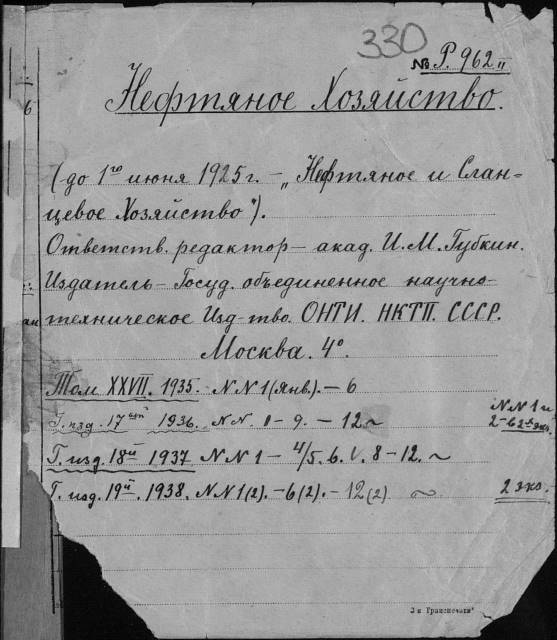 330
№ Р. 962 II
Нефтяное Хозяйство.
6
(до 1го июня 1925 г. — „Нефтяное и Слан-
цевое Хозяйство").
Ответств. редактор — акад. И. М. Губкин.
Издатель — Госуд. объединенное научно-
техническое Изд-тво. ОНТИ. НКТП. СССР.
Москва. 4°.
Том XXVII. 1935. NN 1 (янв.). — 6
Г. изд. 17ый 1936. NN. 1 - 9. - 12
NN 1 и
2-6 2 экз.
Г. изд. 18й 1937 NN 1 - 4/5. 6. 8 - 12.
Г. изд. 19й. 1938. NN 1(2). - 6(2). - 12(2)
2 экз.